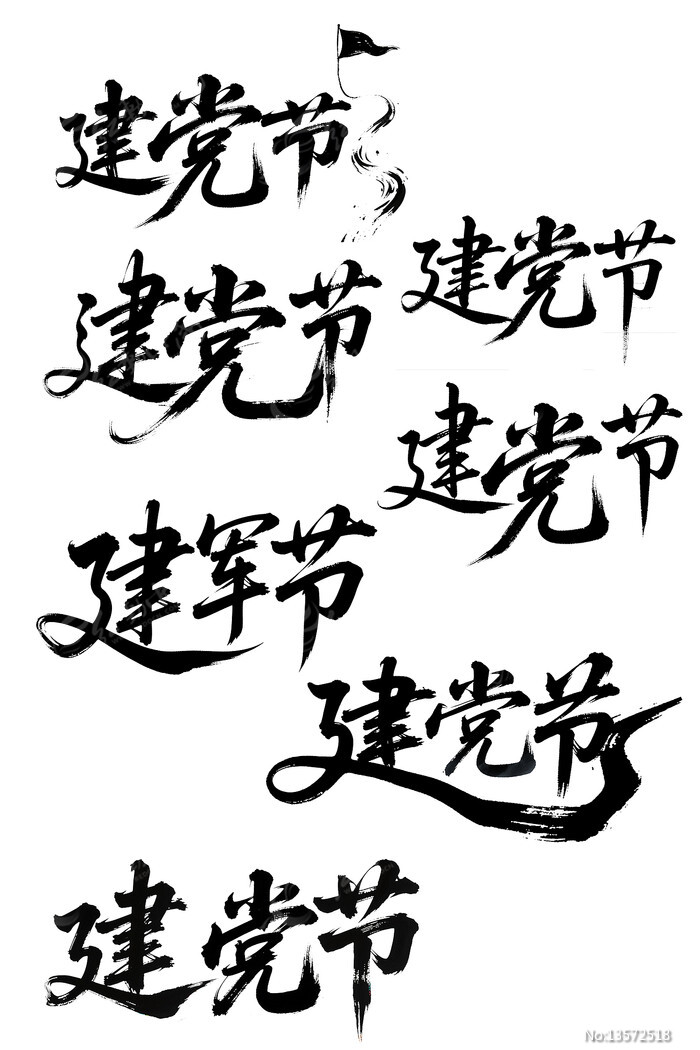 建党节
建党节
建党节
建党节
建军节
建党节
建党节
No:13572518